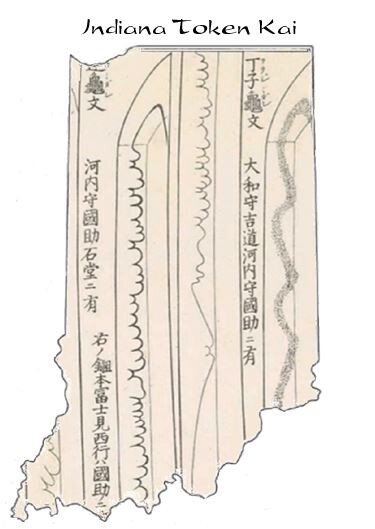 Indiana Token Kai
丁子亂文
大和守吉道河内守國助ニ有
亂文
河内守國助石堂ニ有
右ノ鎺本富士見西行ハ國助ニ